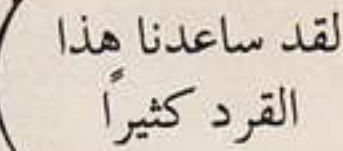 لقد ساعدنا هذا
القرد كثيراً